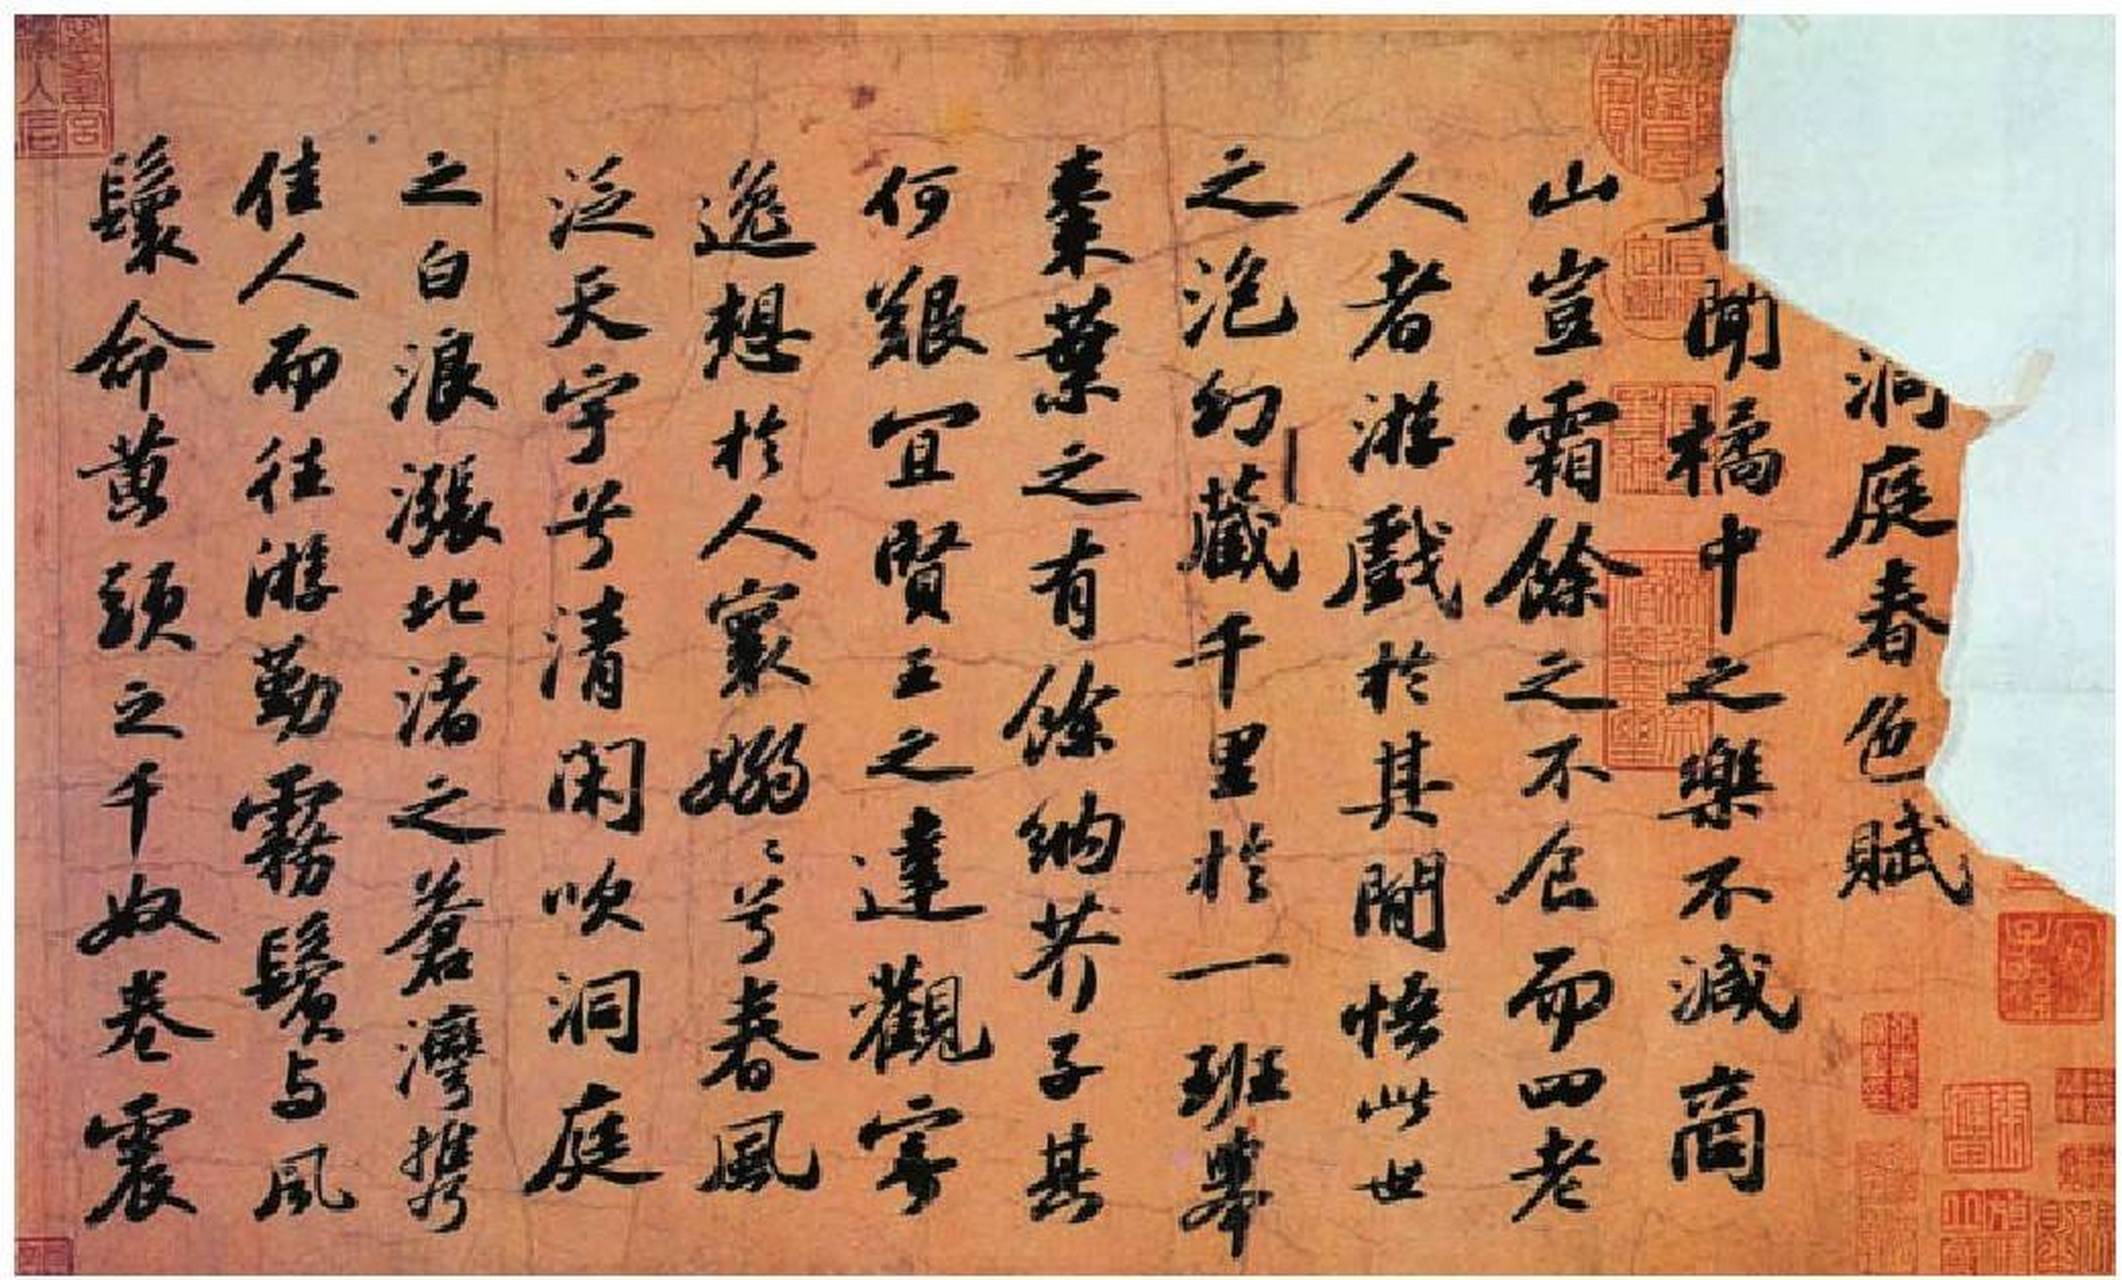 洞庭春色賦
聞橘中之樂不減商
山豈霜餘之不食而四老
人者游戲於其間悟此世
之泡幻藏千里於一班舉
棗葉之有餘納芥子其
何艱宜賢王之達觀寄
逸想於人寰嫋〻兮春風
泛天宇兮清閑吹洞庭
之白浪漲北渚之蒼灣攜
佳人而往游勤霧鬢與風
鬟命黃頭之千奴卷震